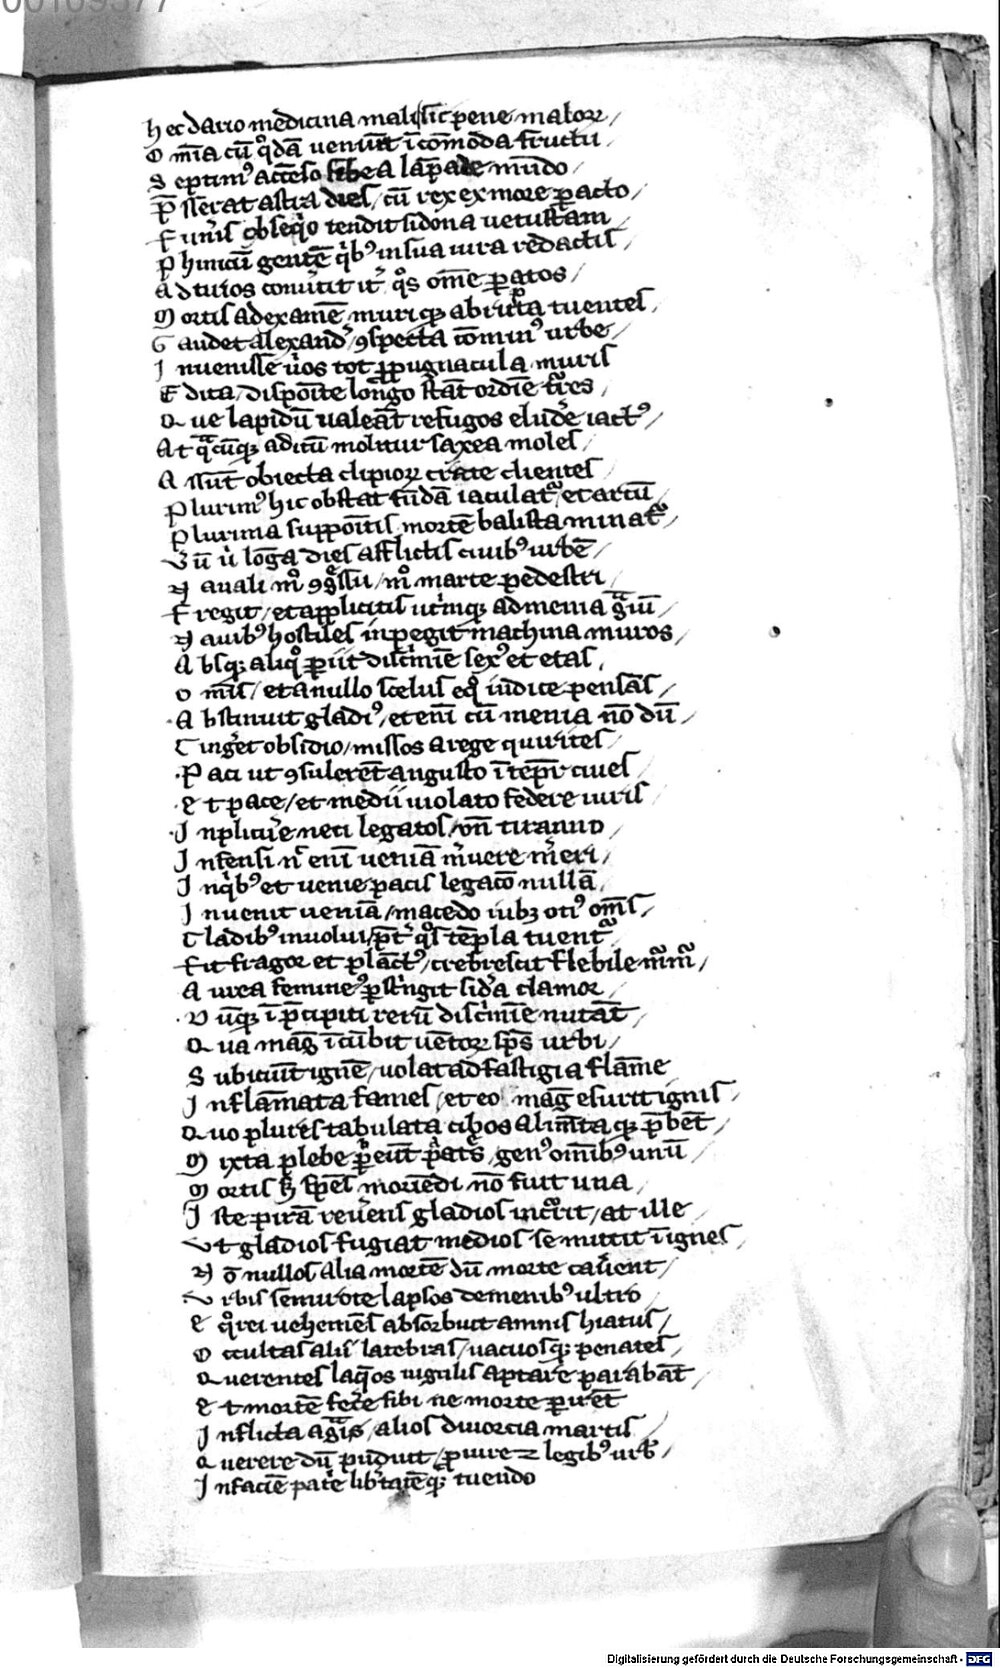 00109377
hec dario medicina mali sic pene malorꝫ /
O m̅ia cū q̇dā ueniūt ī com̅oda fructu /
S eptim᷒ acc̅eso phebea lāpade mundo /
P̅ sserat astra dies / cū rex ex more ꝑacto /
F un̅is obseqͥo tendit sidona uetustam
P hinicū gentē qͥb᷒ in sua iura redactis /
A d tirios conu̅tit it̅ qͦs om̅e ꝑatos /
M ortis ad examē muriqꝫ abrupta tuentes /
G audet alexand̅ ꝯspecta com̅in᷒ urbe /
I nuenisse uͥos tot ꝓpugnacula muris
E dita / dispoīte longo stāt ordīe tᷓres
Q ue lapidū ualeāt refugos elud̅e iact᷒ /
At qᷓcūqꝫ aditū molitur saxea moles /
A ssūt obiecta clipiorꝫ crate clientes /
P lurim᷒ hic obstat fūda iaculatᷣ et arcū /
P lurima suppoītis mortē balista minatᷣ /
Vū uͥ longa dies afflictis ciuib᷒ urbē /
N auali mͦ ꝯgᷓssu / mͦ marte pedestri /
F regit / et applicitis utͥmqꝫ ad menia gᷓuiū /
N auib᷒ hostiles inpegit machina muros /
A bsqꝫ aliqͦ ꝑiit discͥmīe sex᷒ et etas /
O m̅is / et a nullo scelus eqͦ iudice pensās /
A bstinuit gladi᷒ / eteni̅ cū menia nō dū /
C inget obsidio / missos a rege quirites /
P aci ut ꝯsulerēt angusto ī tēpͤ ciues /
E t pace / et medii uiolato federe iuris /
I nplicuͤe neci legatos / vn̅ tiranno /
I nfensi nͨ eni̅ ueniā m̅uere m̅eri /
I nqͥb᷒ et uenie pacis legato nullā
I nuenit ueniā / macedo iubꝫ oci᷒ om̅s /
C ladib᷒ inuolui / p̅tͥ qͦs tēpla tuentᷣ
Fit fragor et plāct᷒ / crebrescit flebile mᷣmᷣ /
A uxa femine᷒ ꝑstͥngit sid̅a clamor /
V ūqꝫ ī p̅cipiti rerū discͥmīe nutāt /
Q ua mag̅ īcūbit uētorꝫ sp̅s urbi /
S ubiciūt ignē / uolat ad fastigia flam̅e
I nflam̅ata fames / et eo mag̅ esurit ignis /
Q uo plures tabulata cibos alim̅ta qꝫ p̅bēt /
M ixta plebe ꝑeūt pͣats / gen᷒ om̅ib᷒ unū /
M ortis sꝫ spēs moriēdi nō fuit una /
I ste pirā reuͤens gladios incᷣrit / at ille /
Vt gladios fugiat medios se mittit ī ignes /
N ō nullos alia mortē dū morte cauͤent /
V rbis semirute lapsos de menib᷒ ultro
E qͦrei uehemēs absorbuit amnis hiatus /
O ccultas alii latebras / uacuosqꝫ penates /
Q uerentes laqͤos uigilis aptare parabāt /
E t mortē fecͤe sibi ne morte ꝑirēt
I nflicta agᷓis / alios diuorcia martis /
Q uerere dū puduit / ꝑ iure ⁊ legib᷒ urb̅ /
I nfaciē patͤ lib̅tatēqꝫ tuendo
Digitalisierung gefördert durch die Deutsche Forschungsgemeinschaft - DFG